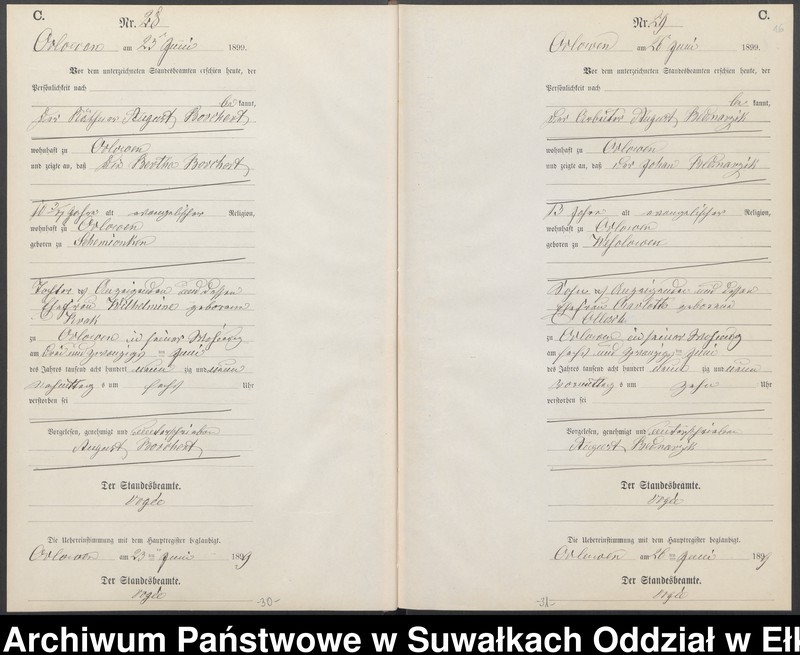 C.
Nr. 28
Orlowen am 23 Juni 1899.
Vor dem unterzeichneten Standesbeamten erschien heute, der
Persönlichkeit nach
be kannt,
der Käthner August Borchert
wohnhaft zu Orlowen
und zeigte an, daß die Bertha Borchert
Jahre alt evangelischer Religion,
wohnhaft zu Orlowen
geboren zu Schemionken
Tochter des Anzeigenden und dessen
Ehefrau Wilhelmine geborene
Kruk
zu Orlowen in seiner Wohnung
am drei und zwanzigsten Juni
des Jahres tausend acht hundert neun zig und neun
Nachmittag s um sechs Uhr
verstorben sei
Vorgelesen, genehmigt und unterschrieben
August Borchert
Der Standesbeamte.
Die Uebereinstimmung mit dem Hauptregister beglaubigt.
Orlowen am 23 ten Juni 1899
Der Standesbeamte.
-30-
C.
16
Nr. 29
Orlowen am 26 Juni 1899.
Vor dem unterzeichneten Standesbeamten erschien heute, der
Persönlichkeit nach
be kannt,
der Arbeiter August Bednarzik
wohnhaft zu Orlowen
und zeigte an, daß der Johan Bednarzik
13 Jahre alt evangelischer Religion,
wohnhaft zu Orlowen
geboren zu Wesolowen
Sohn des Anzeigenden und dessen
Ehefrau Charlotte geborene
Ollesch
zu Orlowen in seiner Wohnung
am sechs und zwanzigsten Juni
des Jahres tausend acht hundert neun zig und neun
Vormittag s um zehn Uhr
verstorben sei
Vorgelesen, genehmigt und unterschrieben
August Bednarzik
Der Standesbeamte.
Die Uebereinstimmung mit dem Hauptregister beglaubigt.
Orlowen am 26 ten Juni 1899
Der Standesbeamte.
-31-
Archiwum Państwowe w Suwałkach Oddział w Ełk